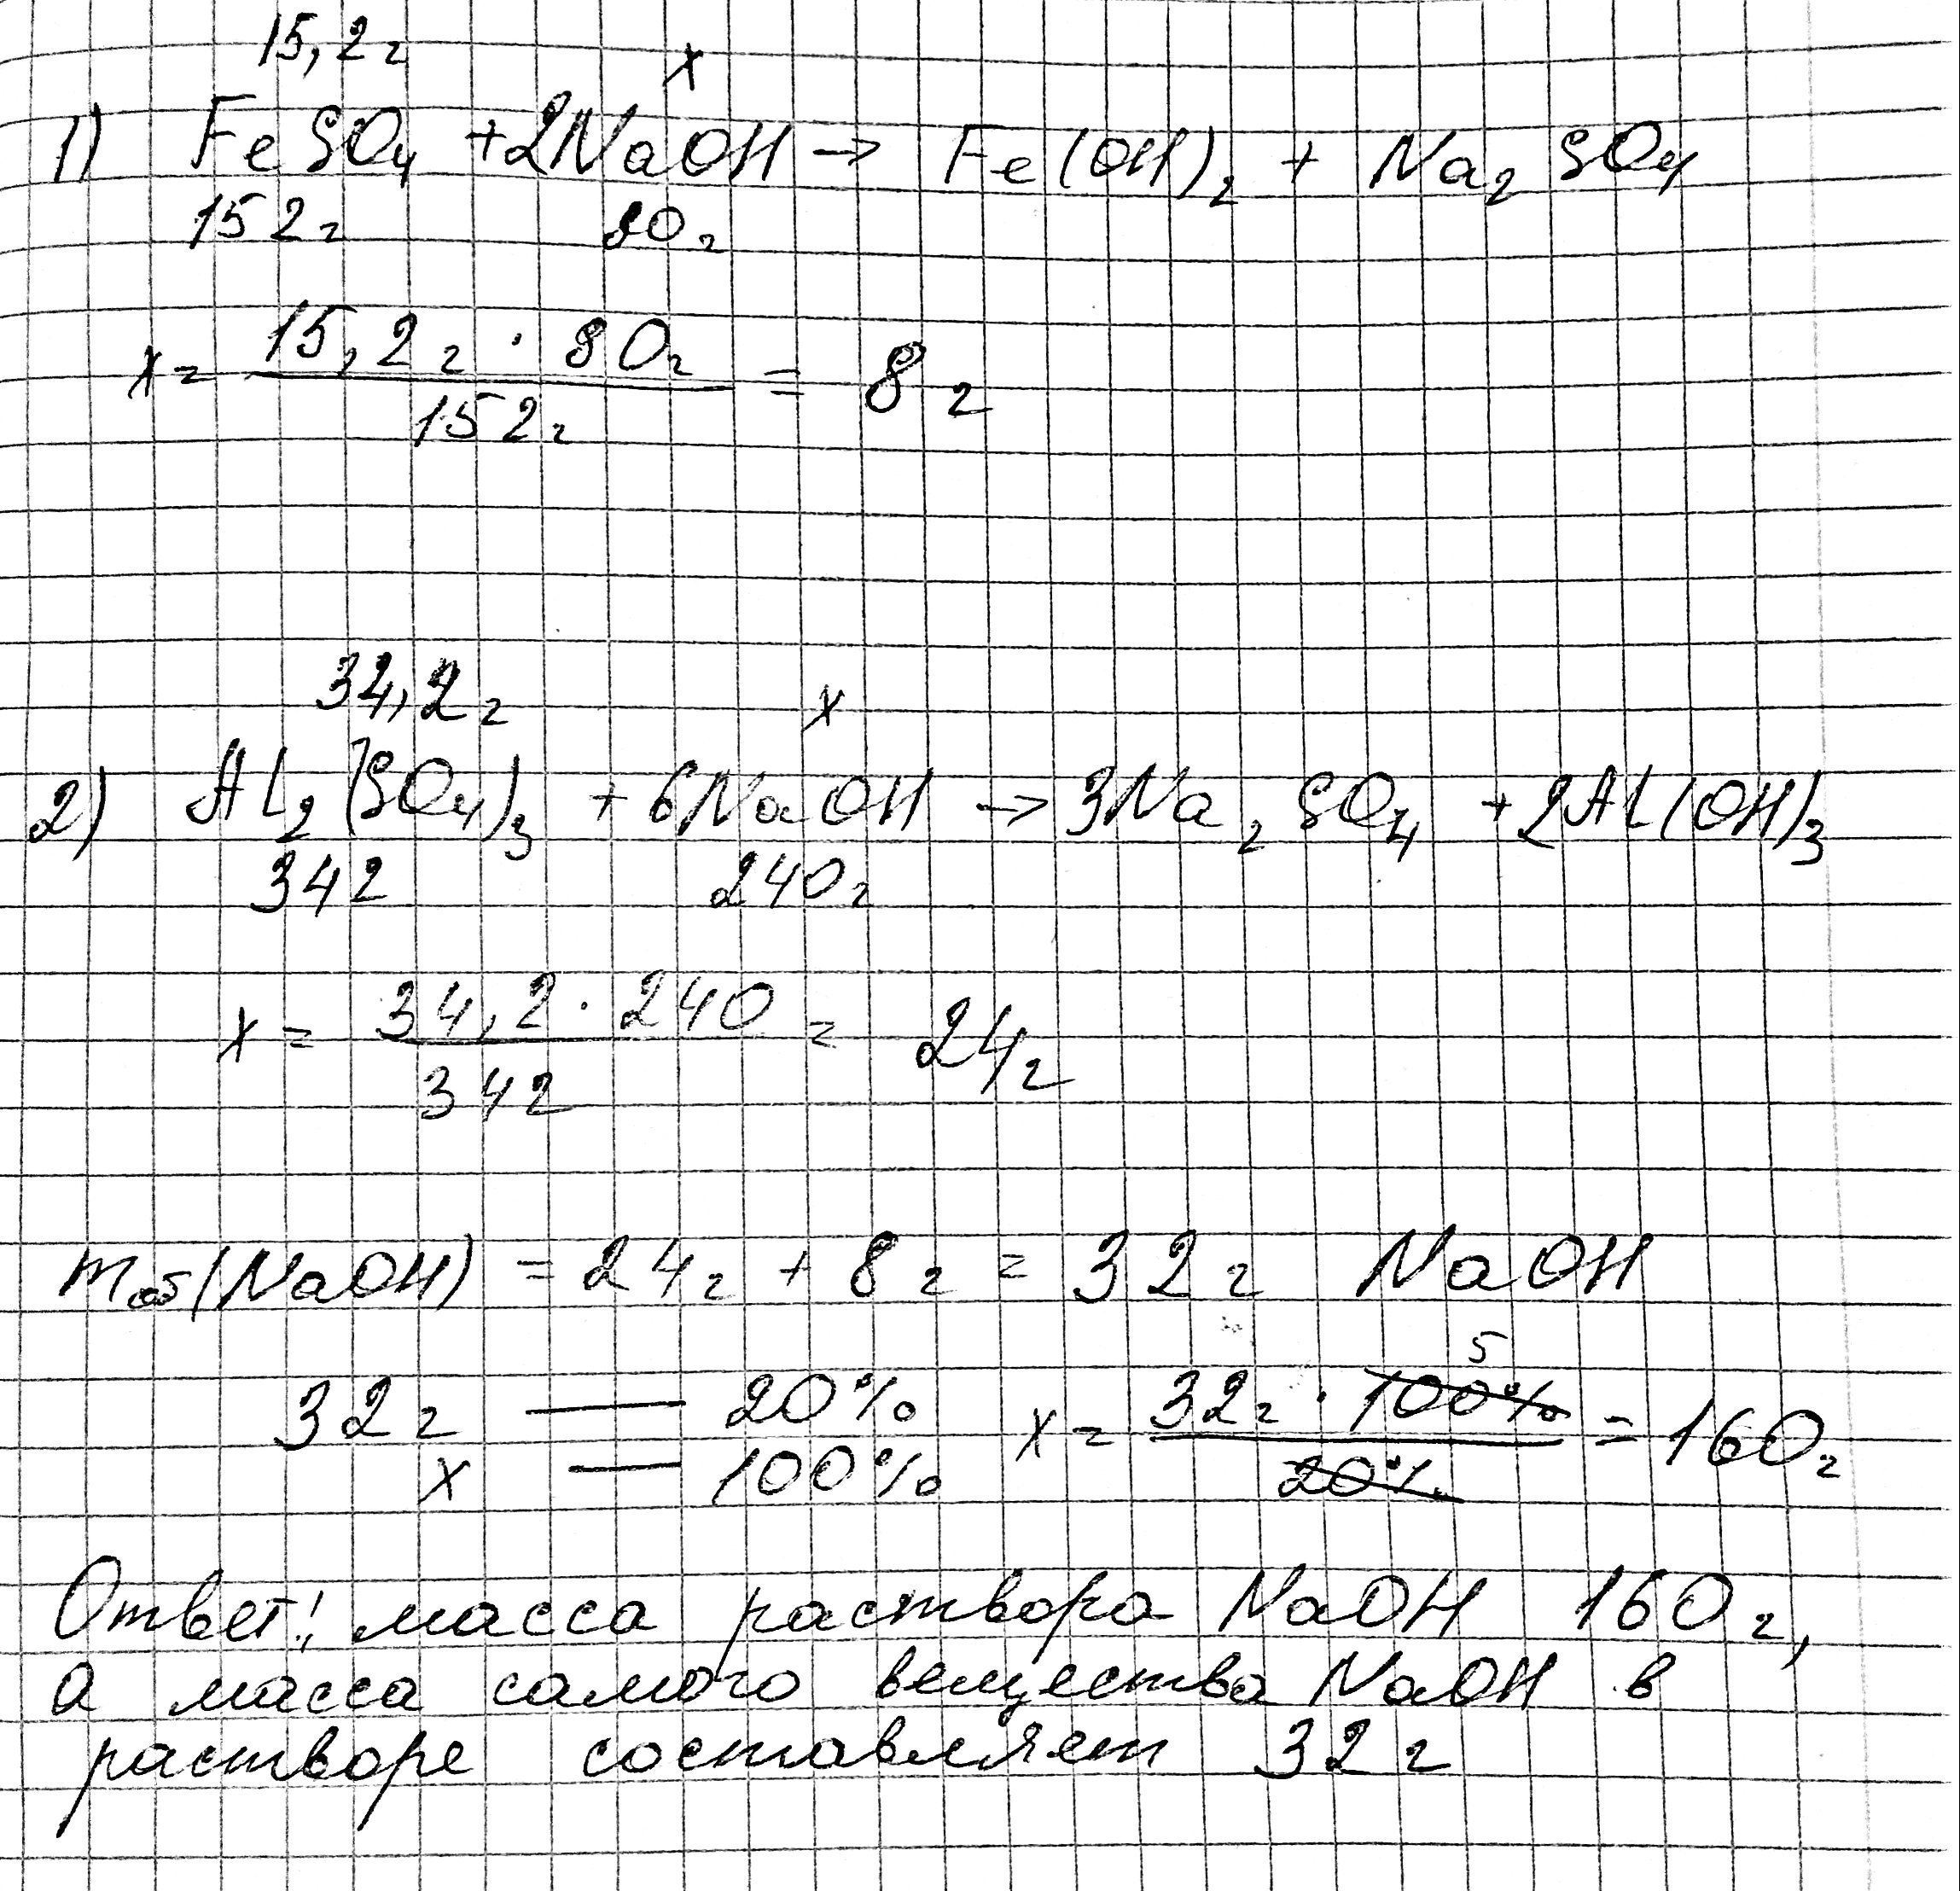 15,2г x
1) FeSO₄ + 2NaOH → Fe(OH)₂ + Na₂SO₄
152г 80г
x = 15,2г · 80г / 152г = 8г
34,2г x
2) AL₂(SO₄)₃ + 6NaOH → 3Na₂SO₄ + 2AL(OH)₃
342 240г
x = 34,2 · 240 / 342 = 24г
mоб(NaOH) = 24г + 8г = 32г NaOH
5
32г — 20% x = 32г · 100% / 20% = 160г
x — 100%
Ответ: масса раствора NaOH 160г,
а масса самого вещества NaOH в
растворе составляет 32г